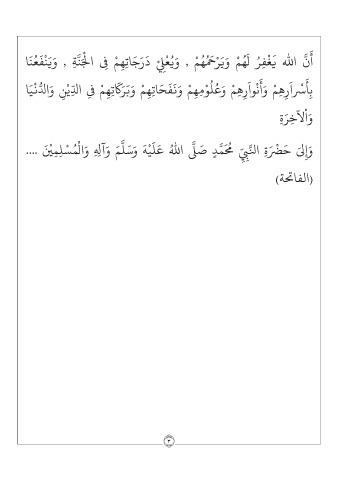 أَنَّ الله يَغْفِرُ لَهُمْ وَيَرْحَمُهُمْ , وَيُعْلِيْ دَرَجَاتِهِمْ فِى الْجَنَّةِ , وَيَنْفَعُنَا
بِأَسْرَارِهِمْ وَأَنْوَارِهِمْ وَعُلُوْمِهِمْ وَنَفَحَاتِهِمْ وَبَرَكَاتِهِمْ فِي الدِّيْنِ وَالدُّنْيَا
وَاْلآخِرَةِ
وَإِلىَ حَضْرَةِ النَّبِيِّ مُحَمَّدٍ صَلَّى اللهُ عَلَيْهَ وَسَلَّمَ وَآلِهِ وَالْمُسْلِمِيْنَ ....
(الفاتحة)
٣